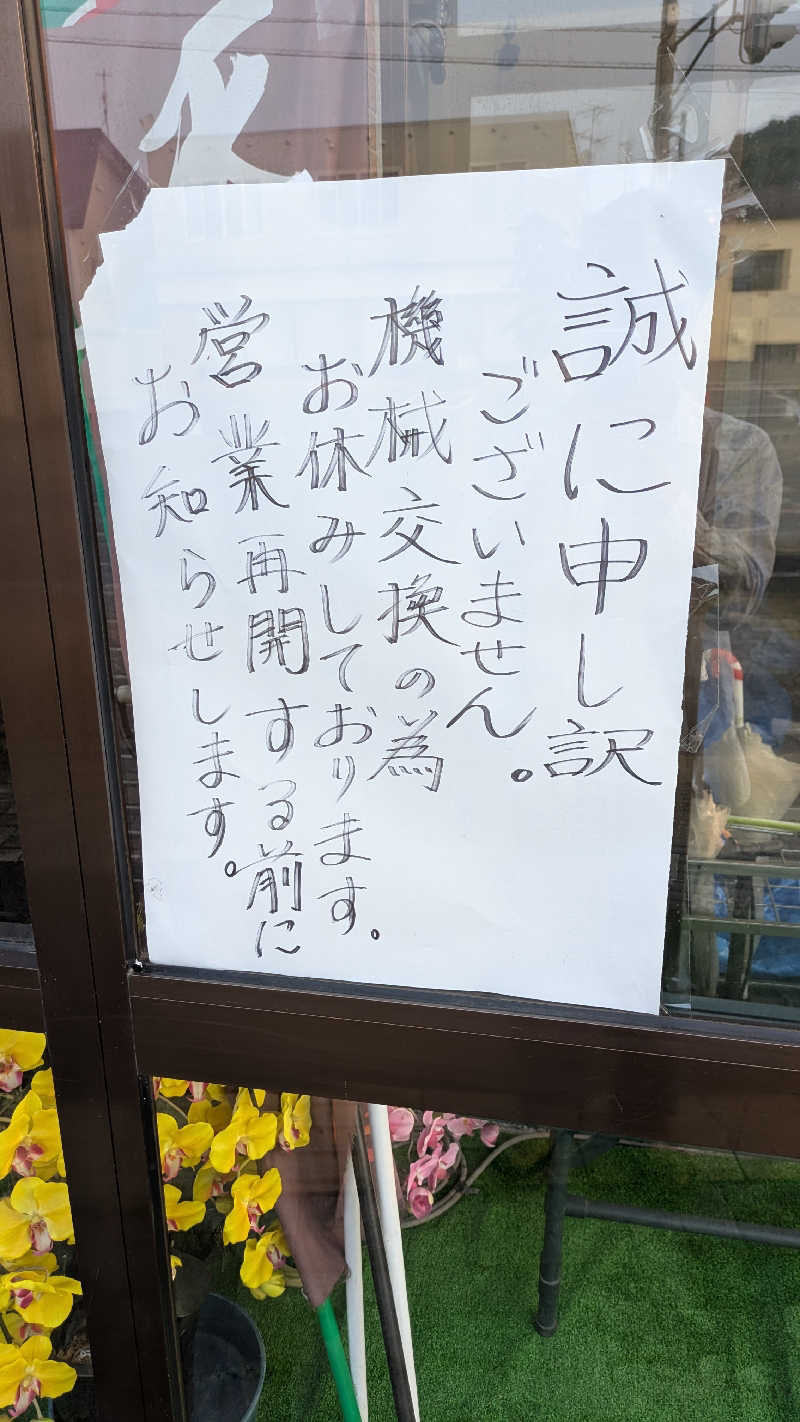 誠に申し訳
ございません。
機械交換の為
お休みしております。
営業再開する前に
お知らせします。